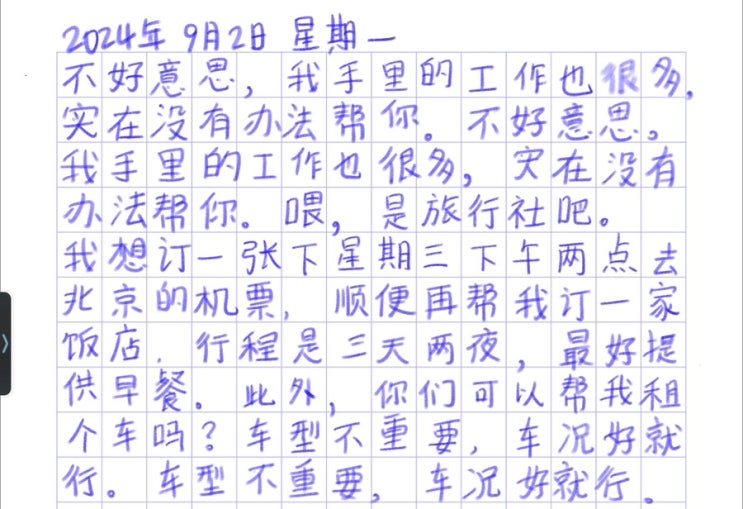 2024年 9月2日 星期一
不好意思，我手里的工作也很多，
实在没有办法帮你。不好意思。
我手里的工作也很多，实在没有
办法帮你。喂，是旅行社吧。
我想订一张下星期三下午两点去
北京的机票，顺便再帮我订一家
饭店．行程是三天两夜，最好提
供早餐。此外，你们可以帮我租
个车吗？车型不重要，车况好就
行。车型不重要，车况好就行．